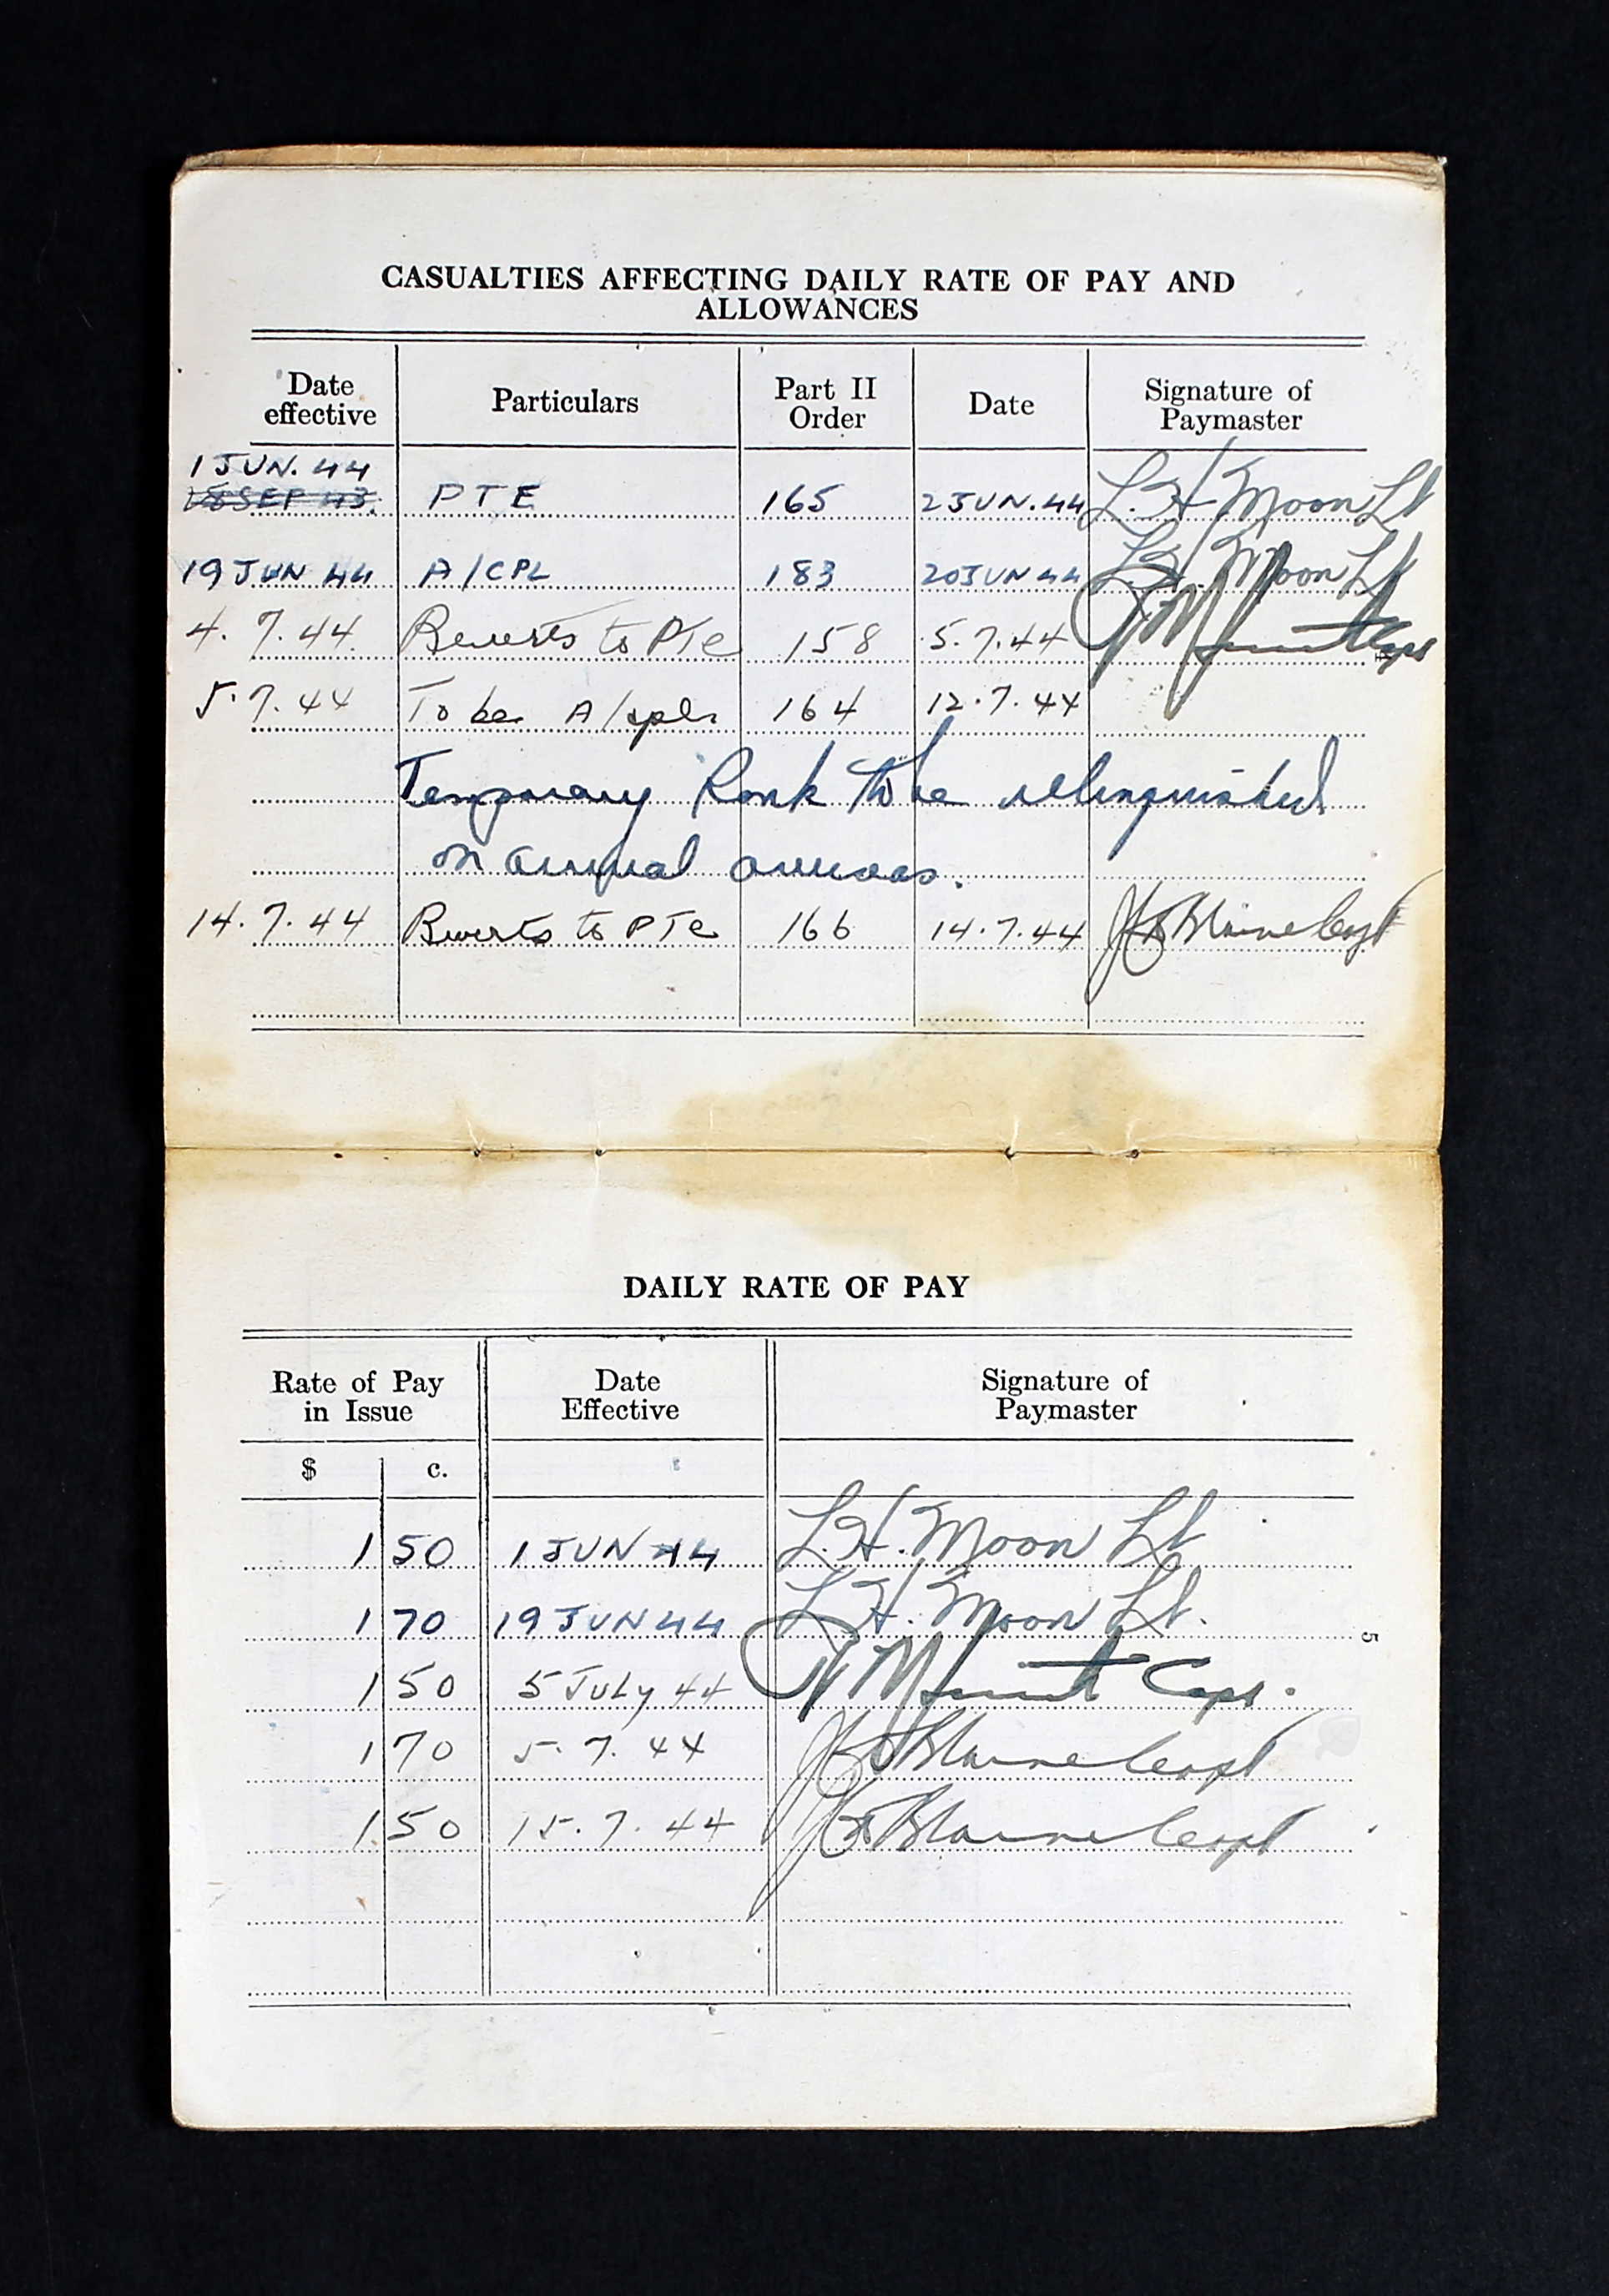 CASUALTIES AFFECTING DAILY RATE OF PAY AND
ALLOWANCES
Date effective Particulars Part II Order Date Signature of Paymaster
1 JUN. 44
18 SEP 43. PTE 165 2 JUN. 44 L. H. Moon Lt
19 JUN 44 A/CPL 183 20 JUN 44 L. H. Moon Lt
4. 7. 44 Reverts to Pte 158 5. 7. 44 Capt
4
5. 7. 44 To be A/cpl 164 12. 7. 44
Temporary Rank to be relinquished
on arrival overseas.
14. 7. 44 Reverts to PTe 166 14. 7. 44 Blaine Capt
DAILY RATE OF PAY
Rate of Pay in Issue Date Effective Signature of Paymaster
$ c.
1 50 1 JUN 44 L. H. Moon Lt
1 70 19 JUN 44 L. H. Moon Lt.
5
1 50 5 July 44 Capt.
1 70 5. 7. 44 Blaine Capt
1 50 15. 7. 44 Blaine Capt